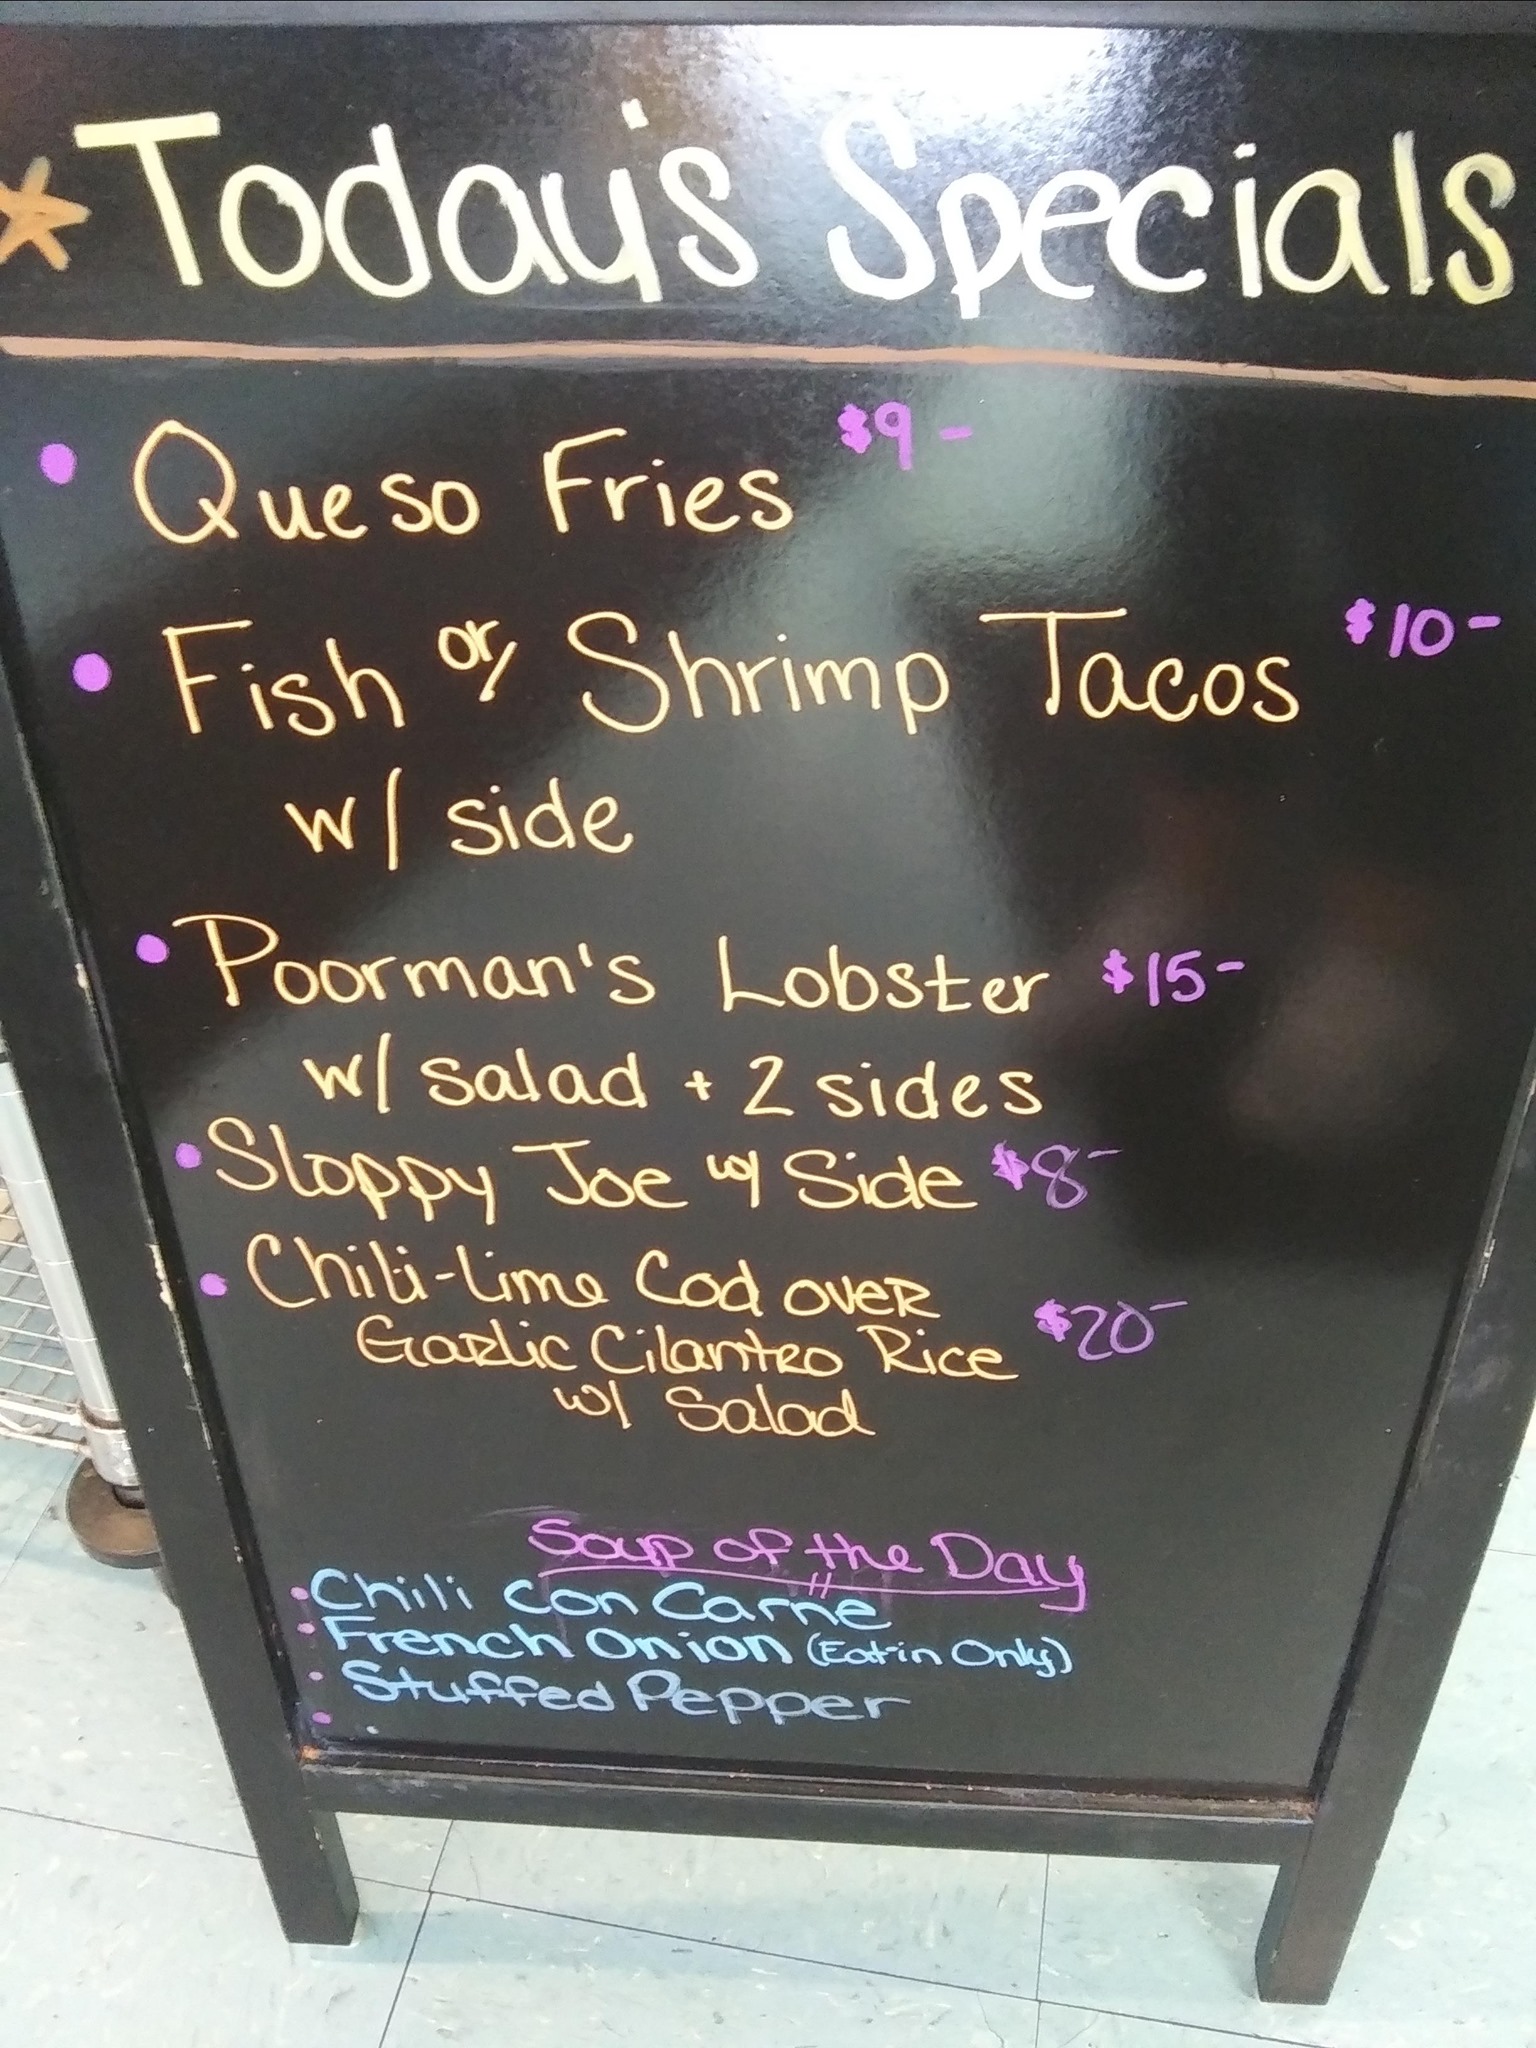 Today's Specials
Queso Fries $9-
Fish or Shrimp Tacos $10-
w/ side
Poorman's Lobster $15-
w/ salad + 2 sides
Sloppy Joe w/ Side $8-
Chili-Lime Cod over
Garlic Cilantro Rice $20-
w/ Salad
Soup of the Day
Chili Con Carne
French Onion (Eat-in Only)
Stuffed Pepper